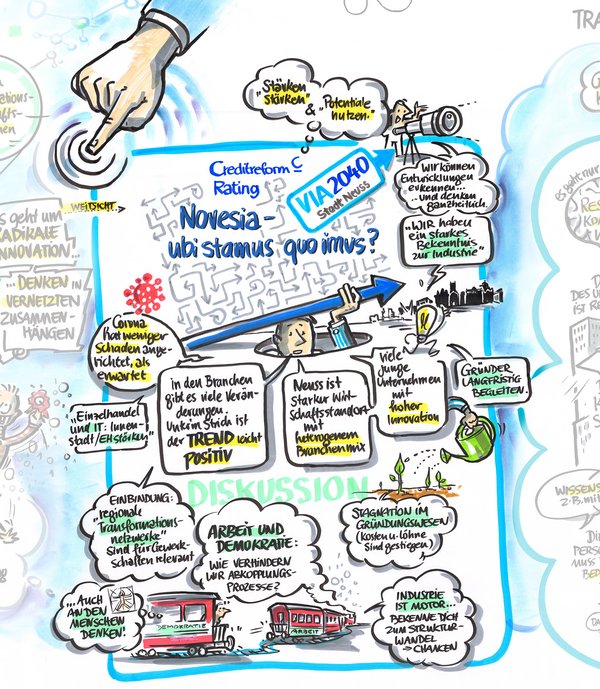 "Stärken
stärken"
& "Potentiale
nutzen."
Creditreform C
Rating
VIA 2040
Stadt Neuss
Wir können
Entwicklungen
erkennen...
...und denken
Ganzheitlich.
...WEITSICHT...
Novesia-
ubi stamus quo imus?
"WIR haben
ein starkes
Bekenntnis
zur Industrie"
es geht um
RADIKALE
INNOVATION...
...DENKEN in
VERNETZTEN
ZUSAMMEN-
HÄNGEN
Corona
hat weniger
Schaden ange-
richtet, als
erwartet
in den Branchen
gibt es viele Verän-
derungen.
Unterm Strich ist
der TREND leicht
POSITIV
Neuss ist
starker Wirt-
schaftsstandort
mit
heterogenem
Branchenmix
viele
junge
Unternehmen
mit
hoher
Innovation
GRÜNDER
LANGFRISTIG
BEGLEITEN.
"Einzelhandel
und IT: Innen-
stadt/EH stärken"
DISKUSSION
EINBINDUNG:
regionale
"Transformations-
netzwerke"
sind für Gewerk-
schaften relevant
ARBEIT UND
DEMOKRATIE:
WIE VERHINDERN
WIR ABKOPPLUNGS-
PROZESSE?
STAGNATION IM
GRÜNDUNGSWESEN
(Kosten u. Löhne
sind gestiegen)
...AUCH
AN DEN
MENSCHEN
DENKEN!
DEMOKRATIE
ARBEIT
INDUSTRIE
IST MOTOR...
BEKENNE DICH
ZUM STRUKTUR-
WANDEL
→ CHANCEN